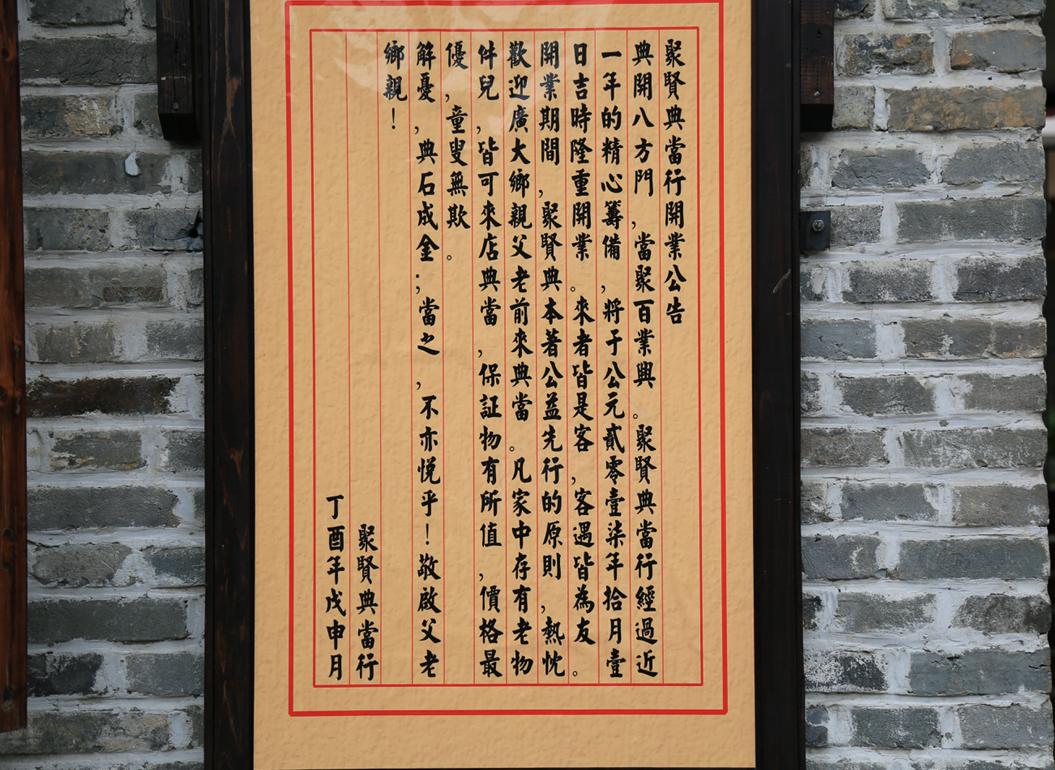 聚賢典當行開業公告
典開八方門，當聚百業興。聚賢典當行經過近
一年的精心籌備，將于公元貳零壹柒年拾月壹
日吉時隆重開業。來者皆是客，客遇皆為友。
開業期間，聚賢典本著公益先行的原則，熱忱
歡迎廣大鄉親父老前來典當。凡家中存有老物
件兒，皆可來店典當，保証物有所值，價格最
優，童叟無欺。
解憂，典石成金；當之，不亦悅乎！敬啟父老
鄉親！
聚賢典當行
丁酉年戊申月